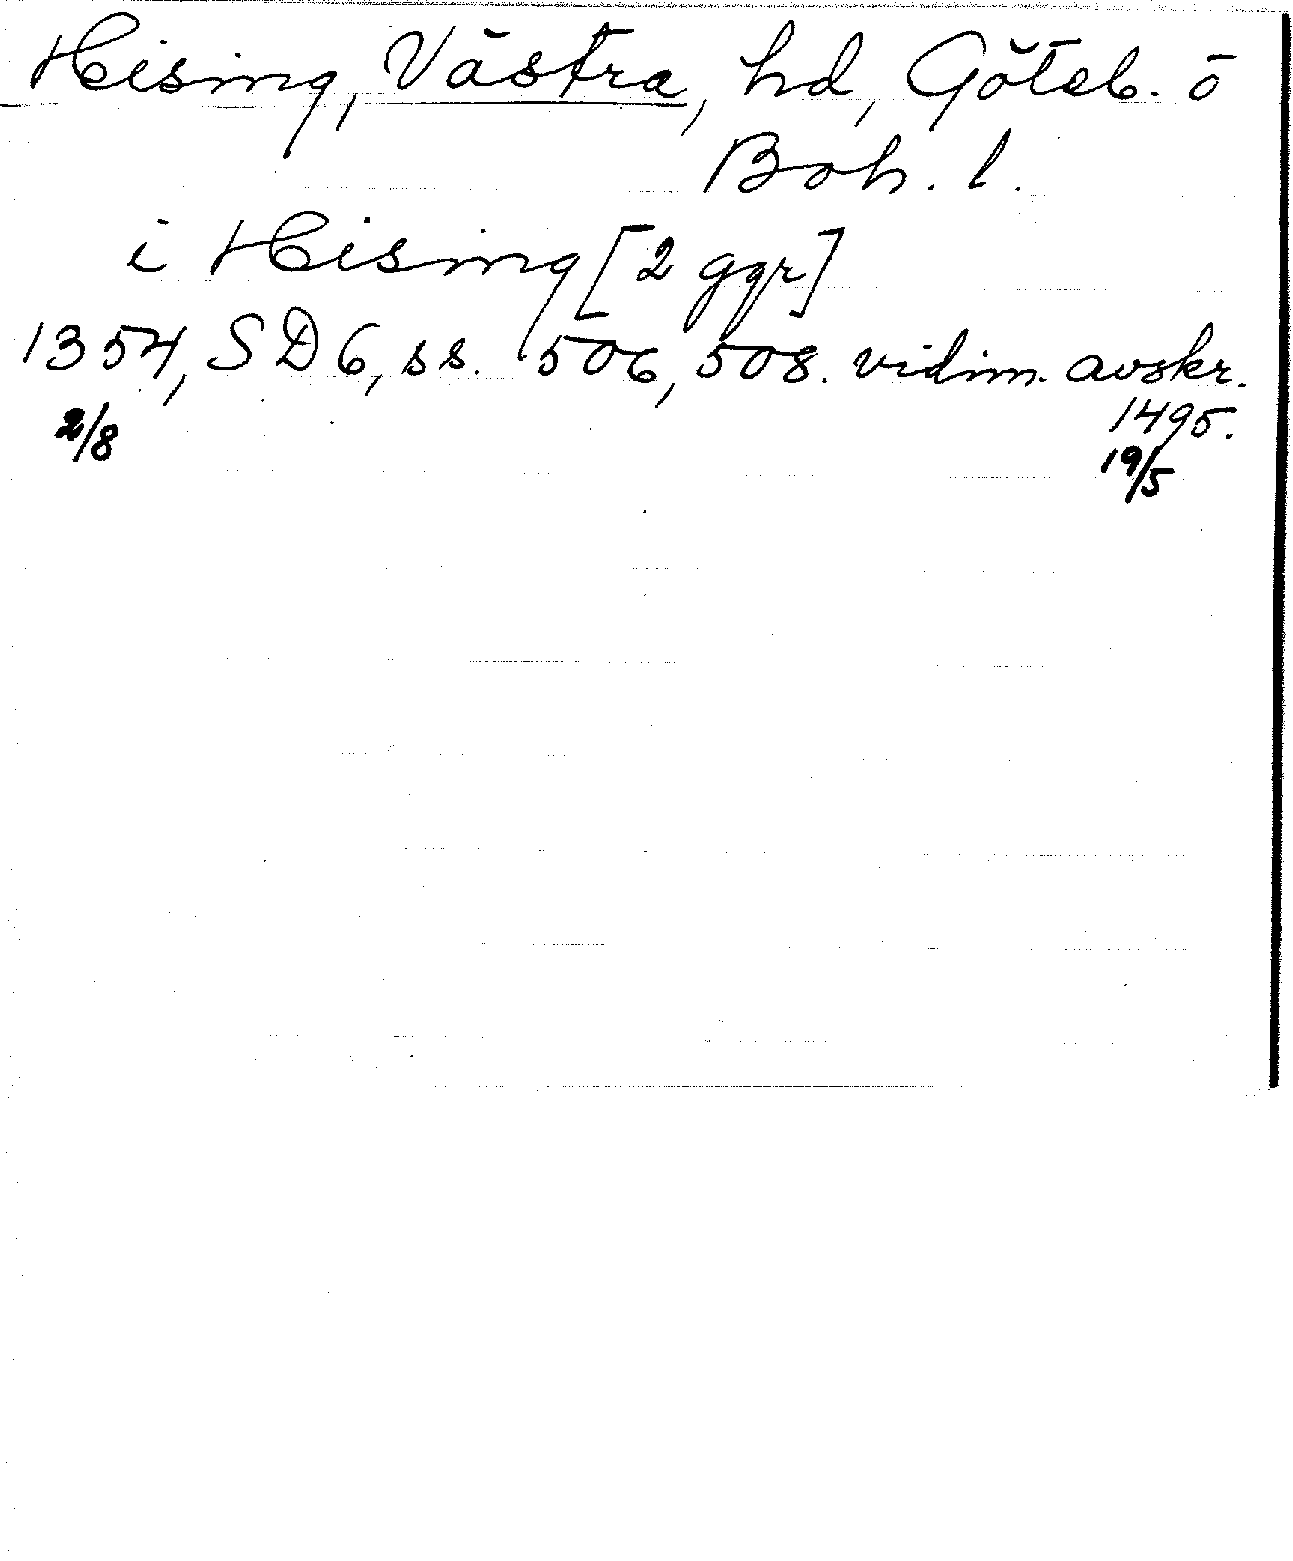 Hising, Västra, hd, Göteb. o
Boh. l.
i Hising [2 ggr]
1354, SD 6, ss. 506, 508. vidim. avskr.
2/8 1495.
19/5